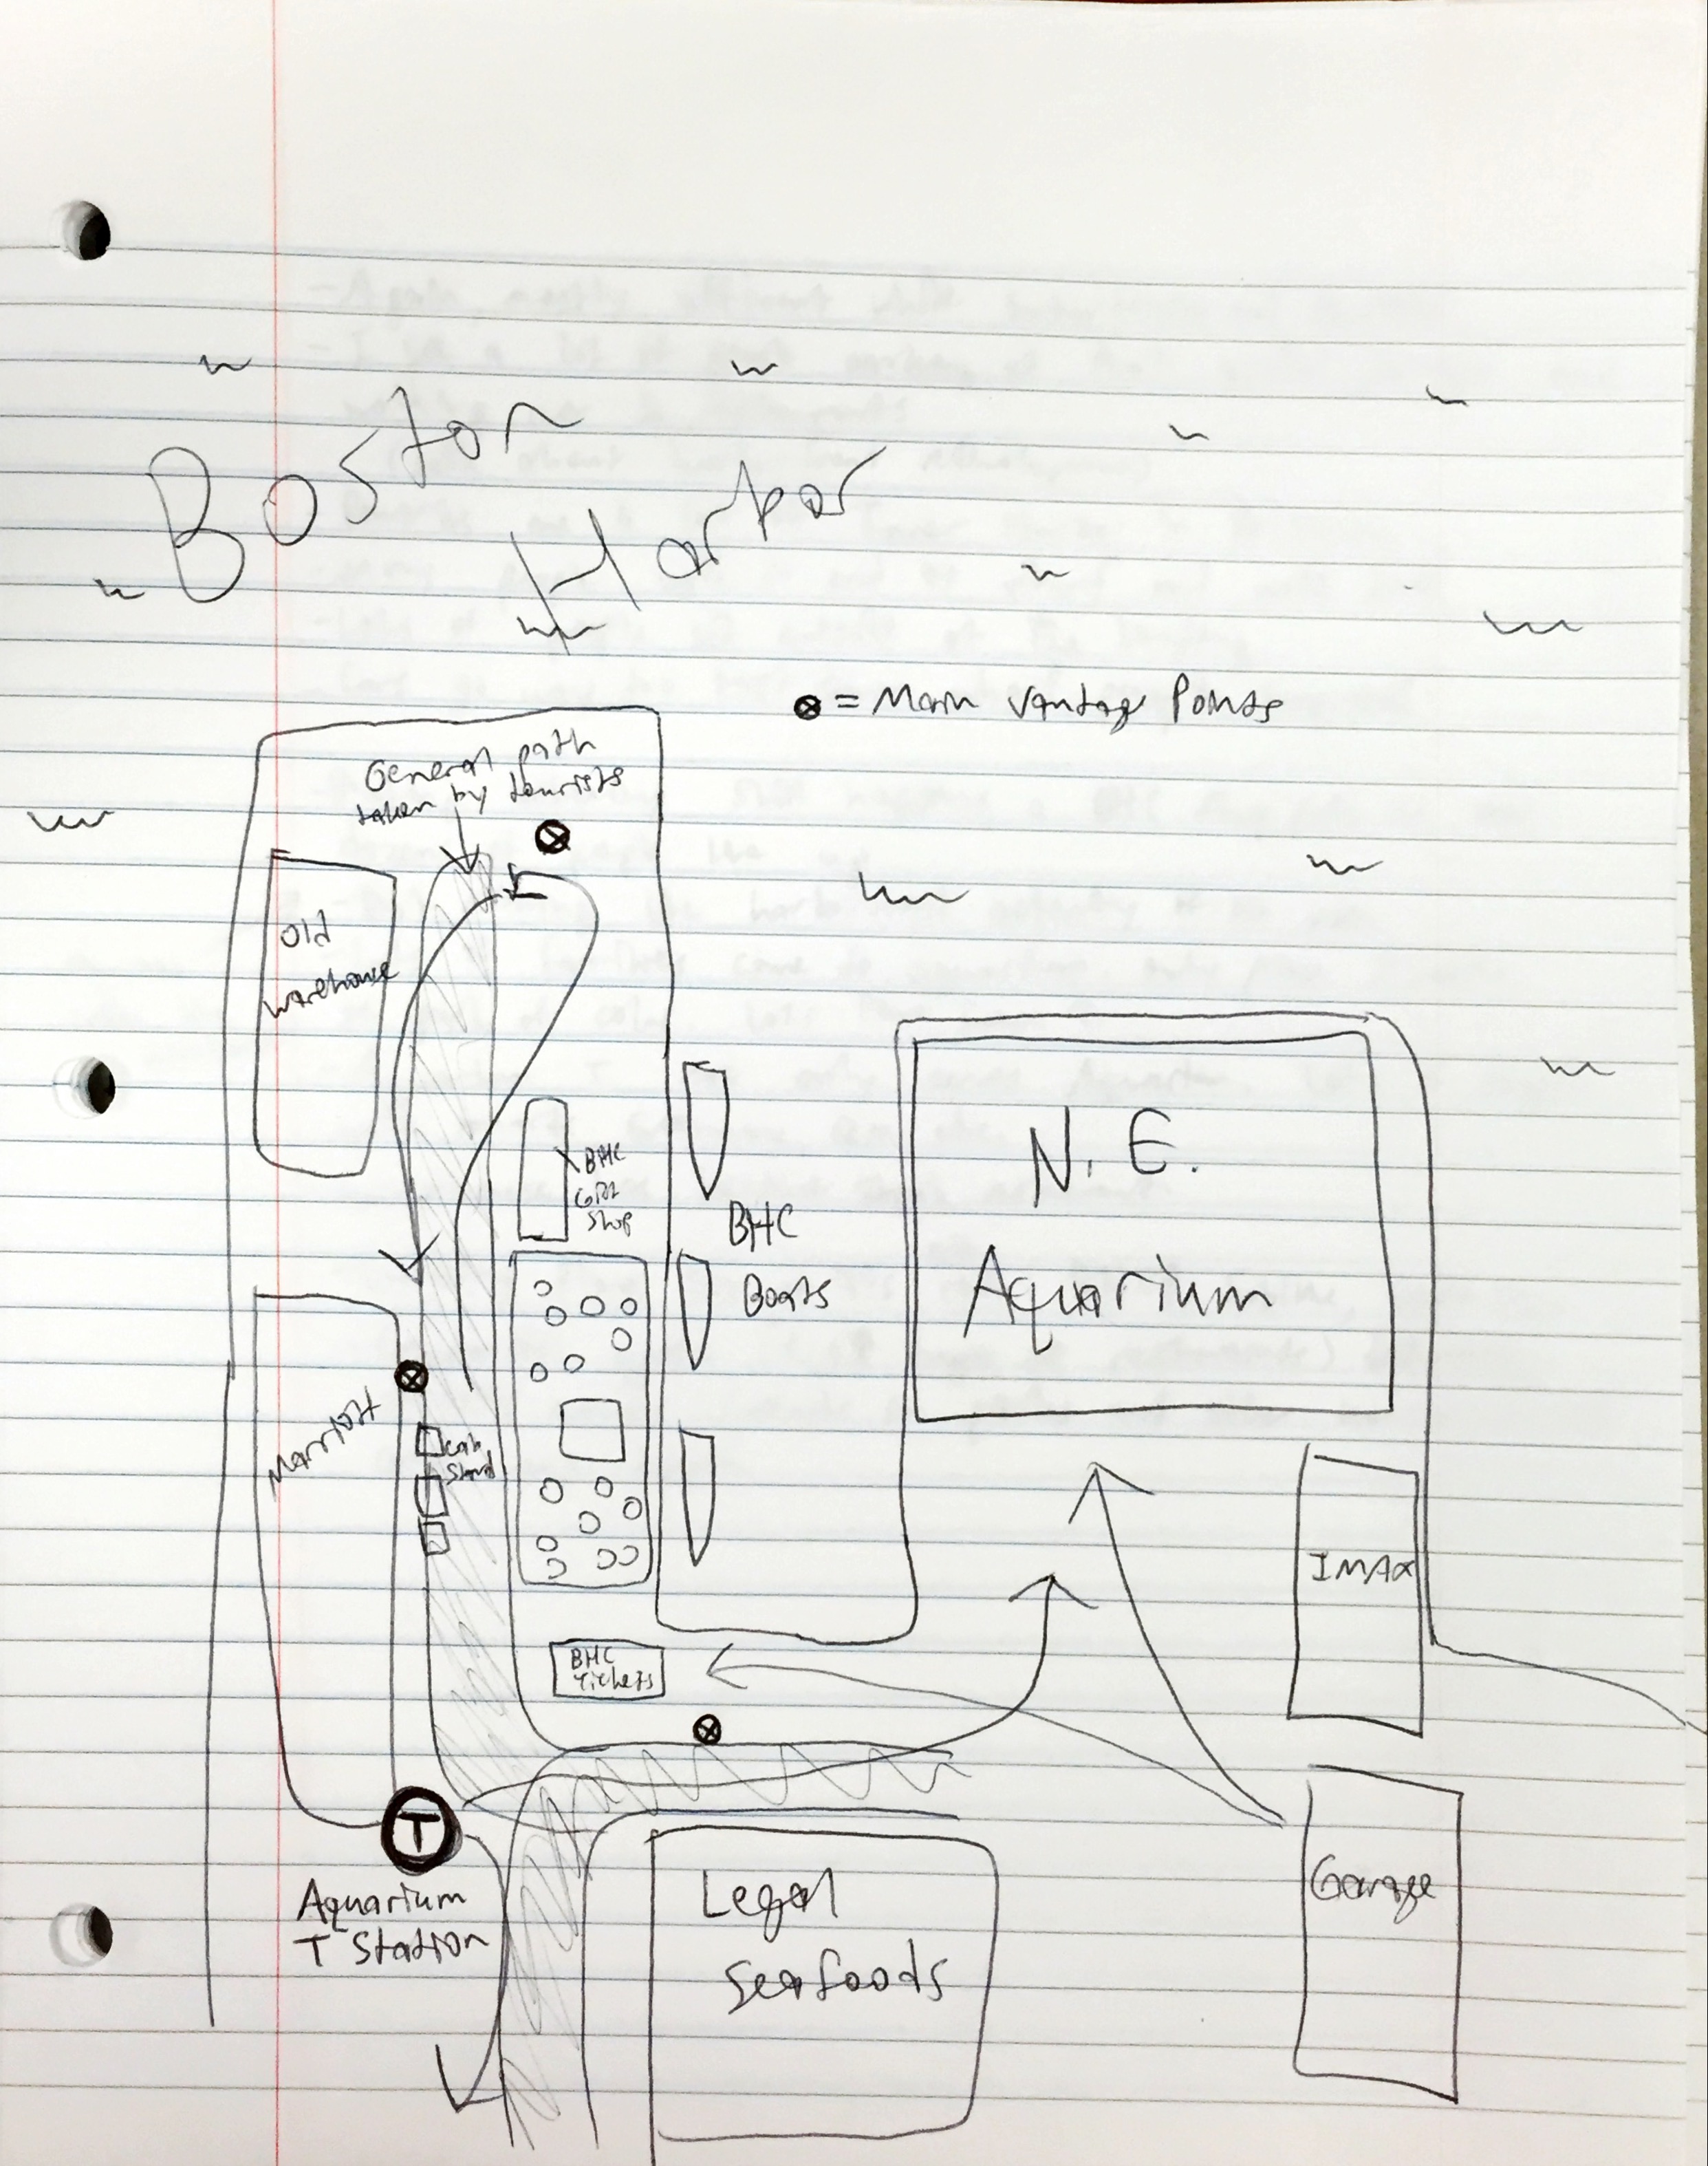 Boston
Harbor
= Main Vantage Points
General path
taken by tourists
Old
Warehouse
BHC
Gift
Shop
BHC
Boats
N. E.
Aquarium
Marriott
Cab
Stand
IMAX
BHC
Tickets
T
Aquarium
T Station
Legal
Seafoods
Garage